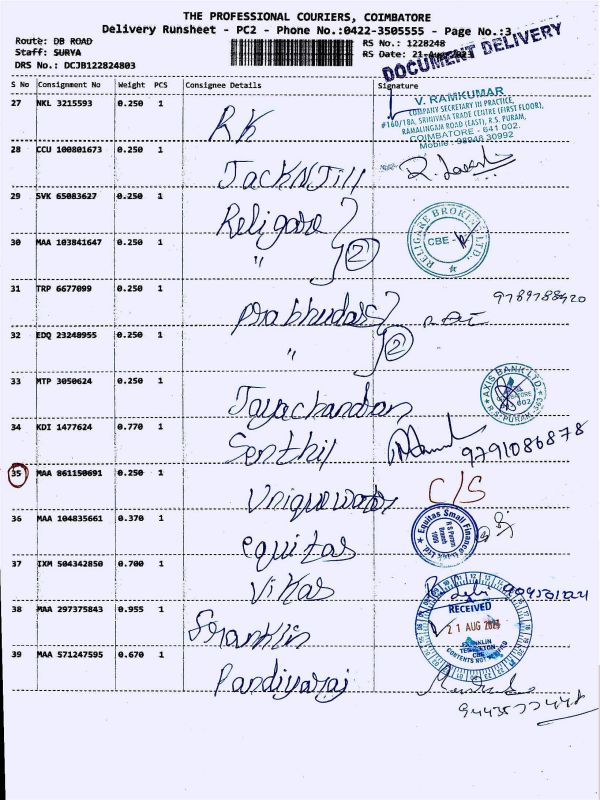 THE PROFESSIONAL COURIERS, COIMBATORE
Delivery Runsheet - PC2 - Phone No.:0422-3505555 - Page No.:3
Route: DB ROAD
RS No.: 1228248
Staff: SURYA
RS Date: 21-Aug-2023
DOCUMENT DELIVERY
DRS No.: DCJB122824803
S No Consignment No Weight PCS Consignee Details Signature
27 NKL 3215593 0.250 1 RK
V. RAMKUMAR
COMPANY SECRETARY IN PRACTICE,
#160/18A, SRINIVASA TRADE CENTRE (FIRST FLOOR),
RAMALINGAM ROAD (EAST), R.S. PURAM,
COIMBATORE - 641 002.
Mobile: 98948 30992
28 CCU 100801673 0.250 1 JackNJill
29 SVK 65083627 0.250 1 Religare
RELIGARE BROKING LTD.
CBE
30 MAA 103841647 0.250 1 " 2
31 TRP 6677099 0.250 1 Prabhudas
32 EDQ 23248955 0.250 1 " 2
33 MTP 3050624 0.250 1 Jayachandran
AXIS BANK LTD.
34 KDI 1477624 0.770 1 Senthil 9791086878
35 MAA 861150691 0.250 1 Uniqueworld C/S
36 MAA 104835661 0.370 1 equitas
Equitas Small Finance Bank Ltd.
37 IXM 504342850 0.700 1 Vikas
38 MAA 297375843 0.955 1 Franklin
RECEIVED
21 AUG 2023
FRANKLIN
TEMPLETON
CBE
CONTENTS NOT VERIFIED
39 MAA 571247595 0.670 1 Pandiyaraj